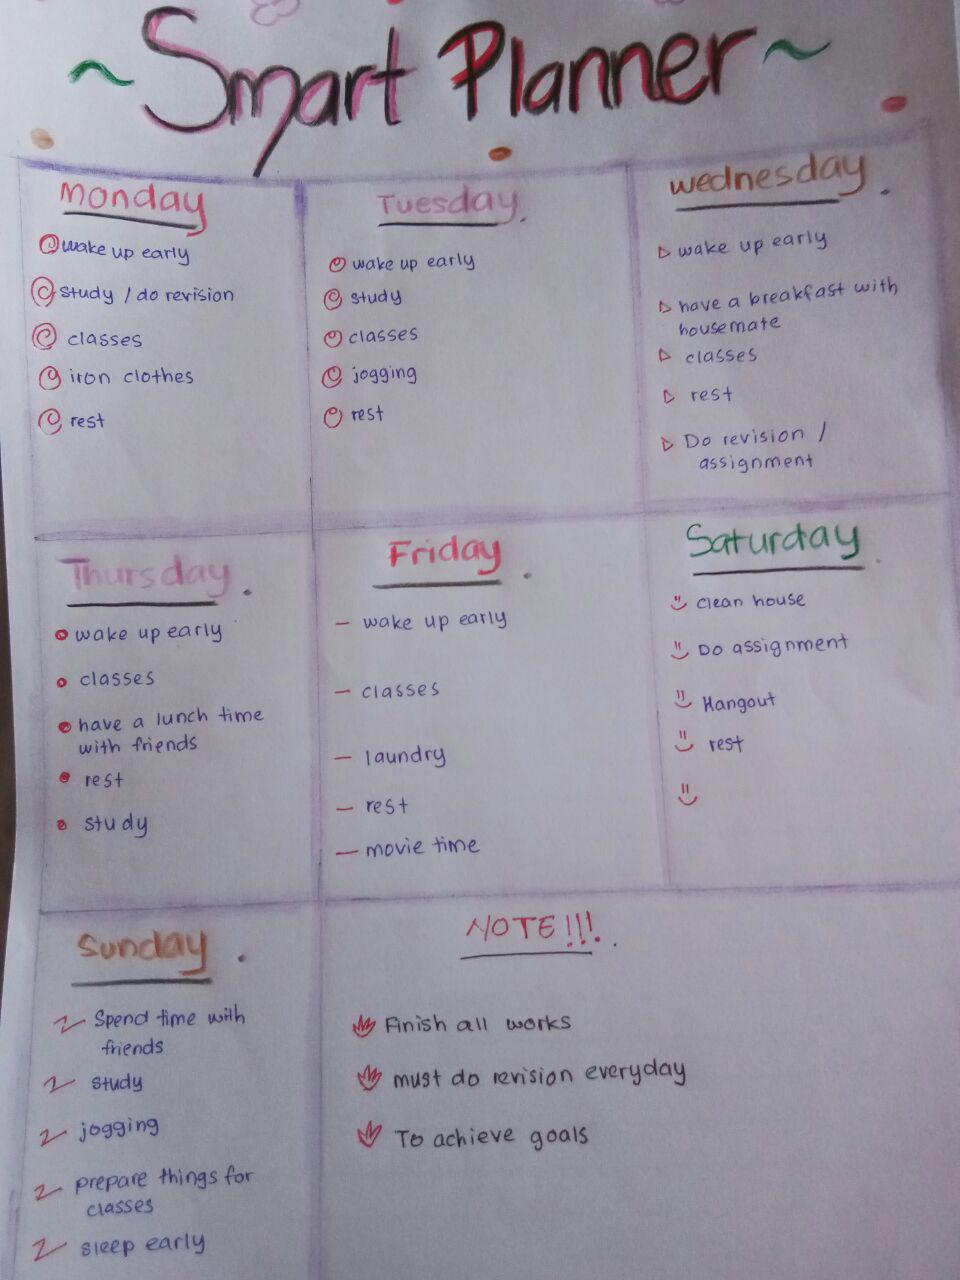 ~Smart Planner~
Monday
wake up early
study / do revision
classes
iron clothes
rest
Tuesday.
wake up early
study
classes
jogging
rest
Wednesday.
wake up early
have a breakfast with
housemate
classes
rest
Do revision /
assignment
Thursday.
wake up early
classes
have a lunch time
with friends
rest
study
Friday.
wake up early
classes
laundry
rest
movie time
Saturday.
clean house
Do assignment
Hangout
rest
Sunday.
Spend time with
friends
study
jogging
prepare things for
classes
sleep early
NOTE!!!.
Finish all works
must do revision everyday
To achieve goals